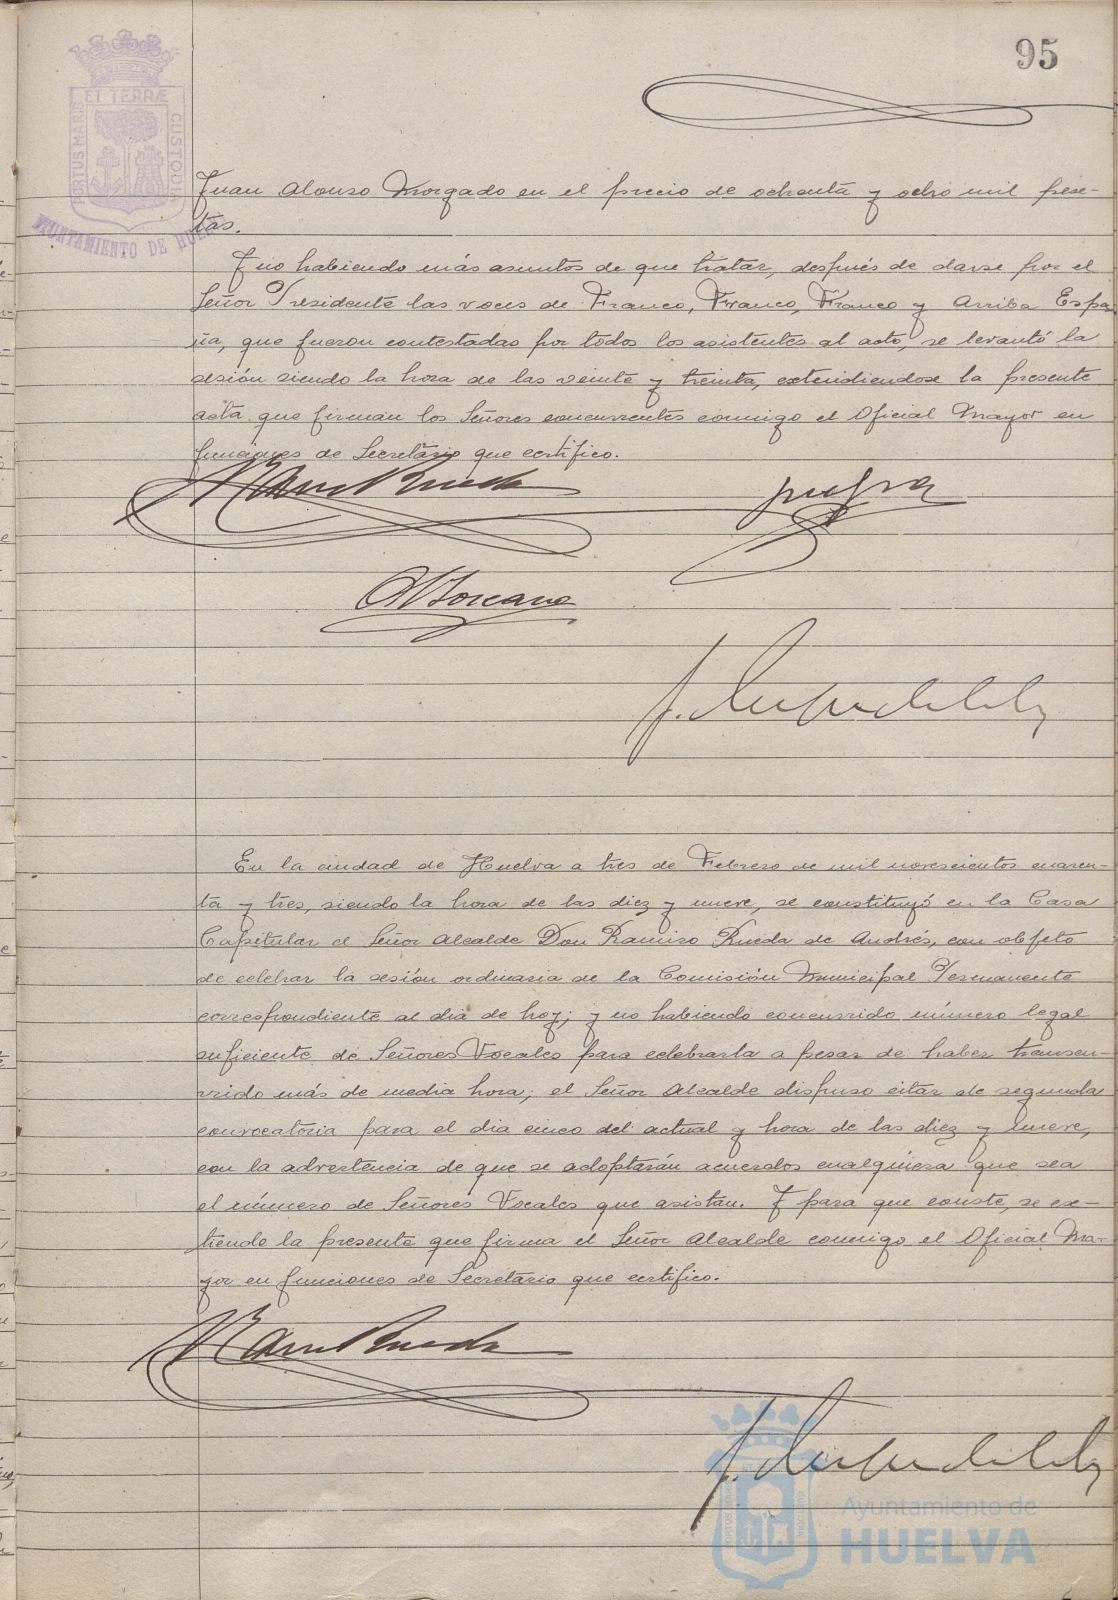 95
PORTUS MARIS ET TERRÆ CUSTODIA
AYUNTAMIENTO DE HUELVA
Juan Alonso Morgado en el precio de ochenta y ocho mil pese-
tas.
Y no habiendo más asuntos de que tratar, después de darse por el
Señor Presidente las voces de Franco, Franco, Franco y Arriba Espa-
ña, que fueron contestadas por todos los asistentes al acto, se levantó la
sesión siendo la hora de las veinte y treinta, extendiendose la presente
acta que firman los Señores concurrentes conmigo el Oficial Mayor en
funciones de Secretario que certifico.
En la ciudad de Huelva a tres de Febrero de mil novescientos cuaren-
ta y tres, siendo la hora de las diez y nueve, se constituyó en la Casa
Capitular el Señor Alcalde Don Ramiro Rueda de Andrés, con objeto
de celebrar la sesión ordinaria de la Comisión Municipal Permanente
correspondiente al dia de hoy; y no habiendo concurrido número legal
suficiente de Señores Vocales para celebrarla a pesar de haber transcu-
rrido más de media hora; el Señor Alcalde dispuso citar de segunda
convocatoria para el dia cinco del actual y hora de las diez y nueve,
con la advertencia de que se adoptarán acuerdos cualquiera que sea
el número de Señores Vocales que asistan. Y para que conste, se ex-
tiende la presente que firma el Señor Alcalde conmigo el Oficial Ma-
yor en funciones de Secretario que certifico.
Ayuntamiento de
HUELVA